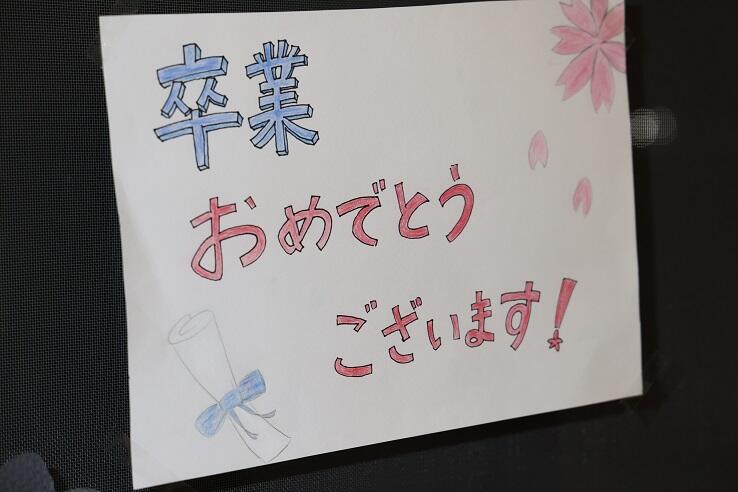 卒業
おめでとう
ございます!